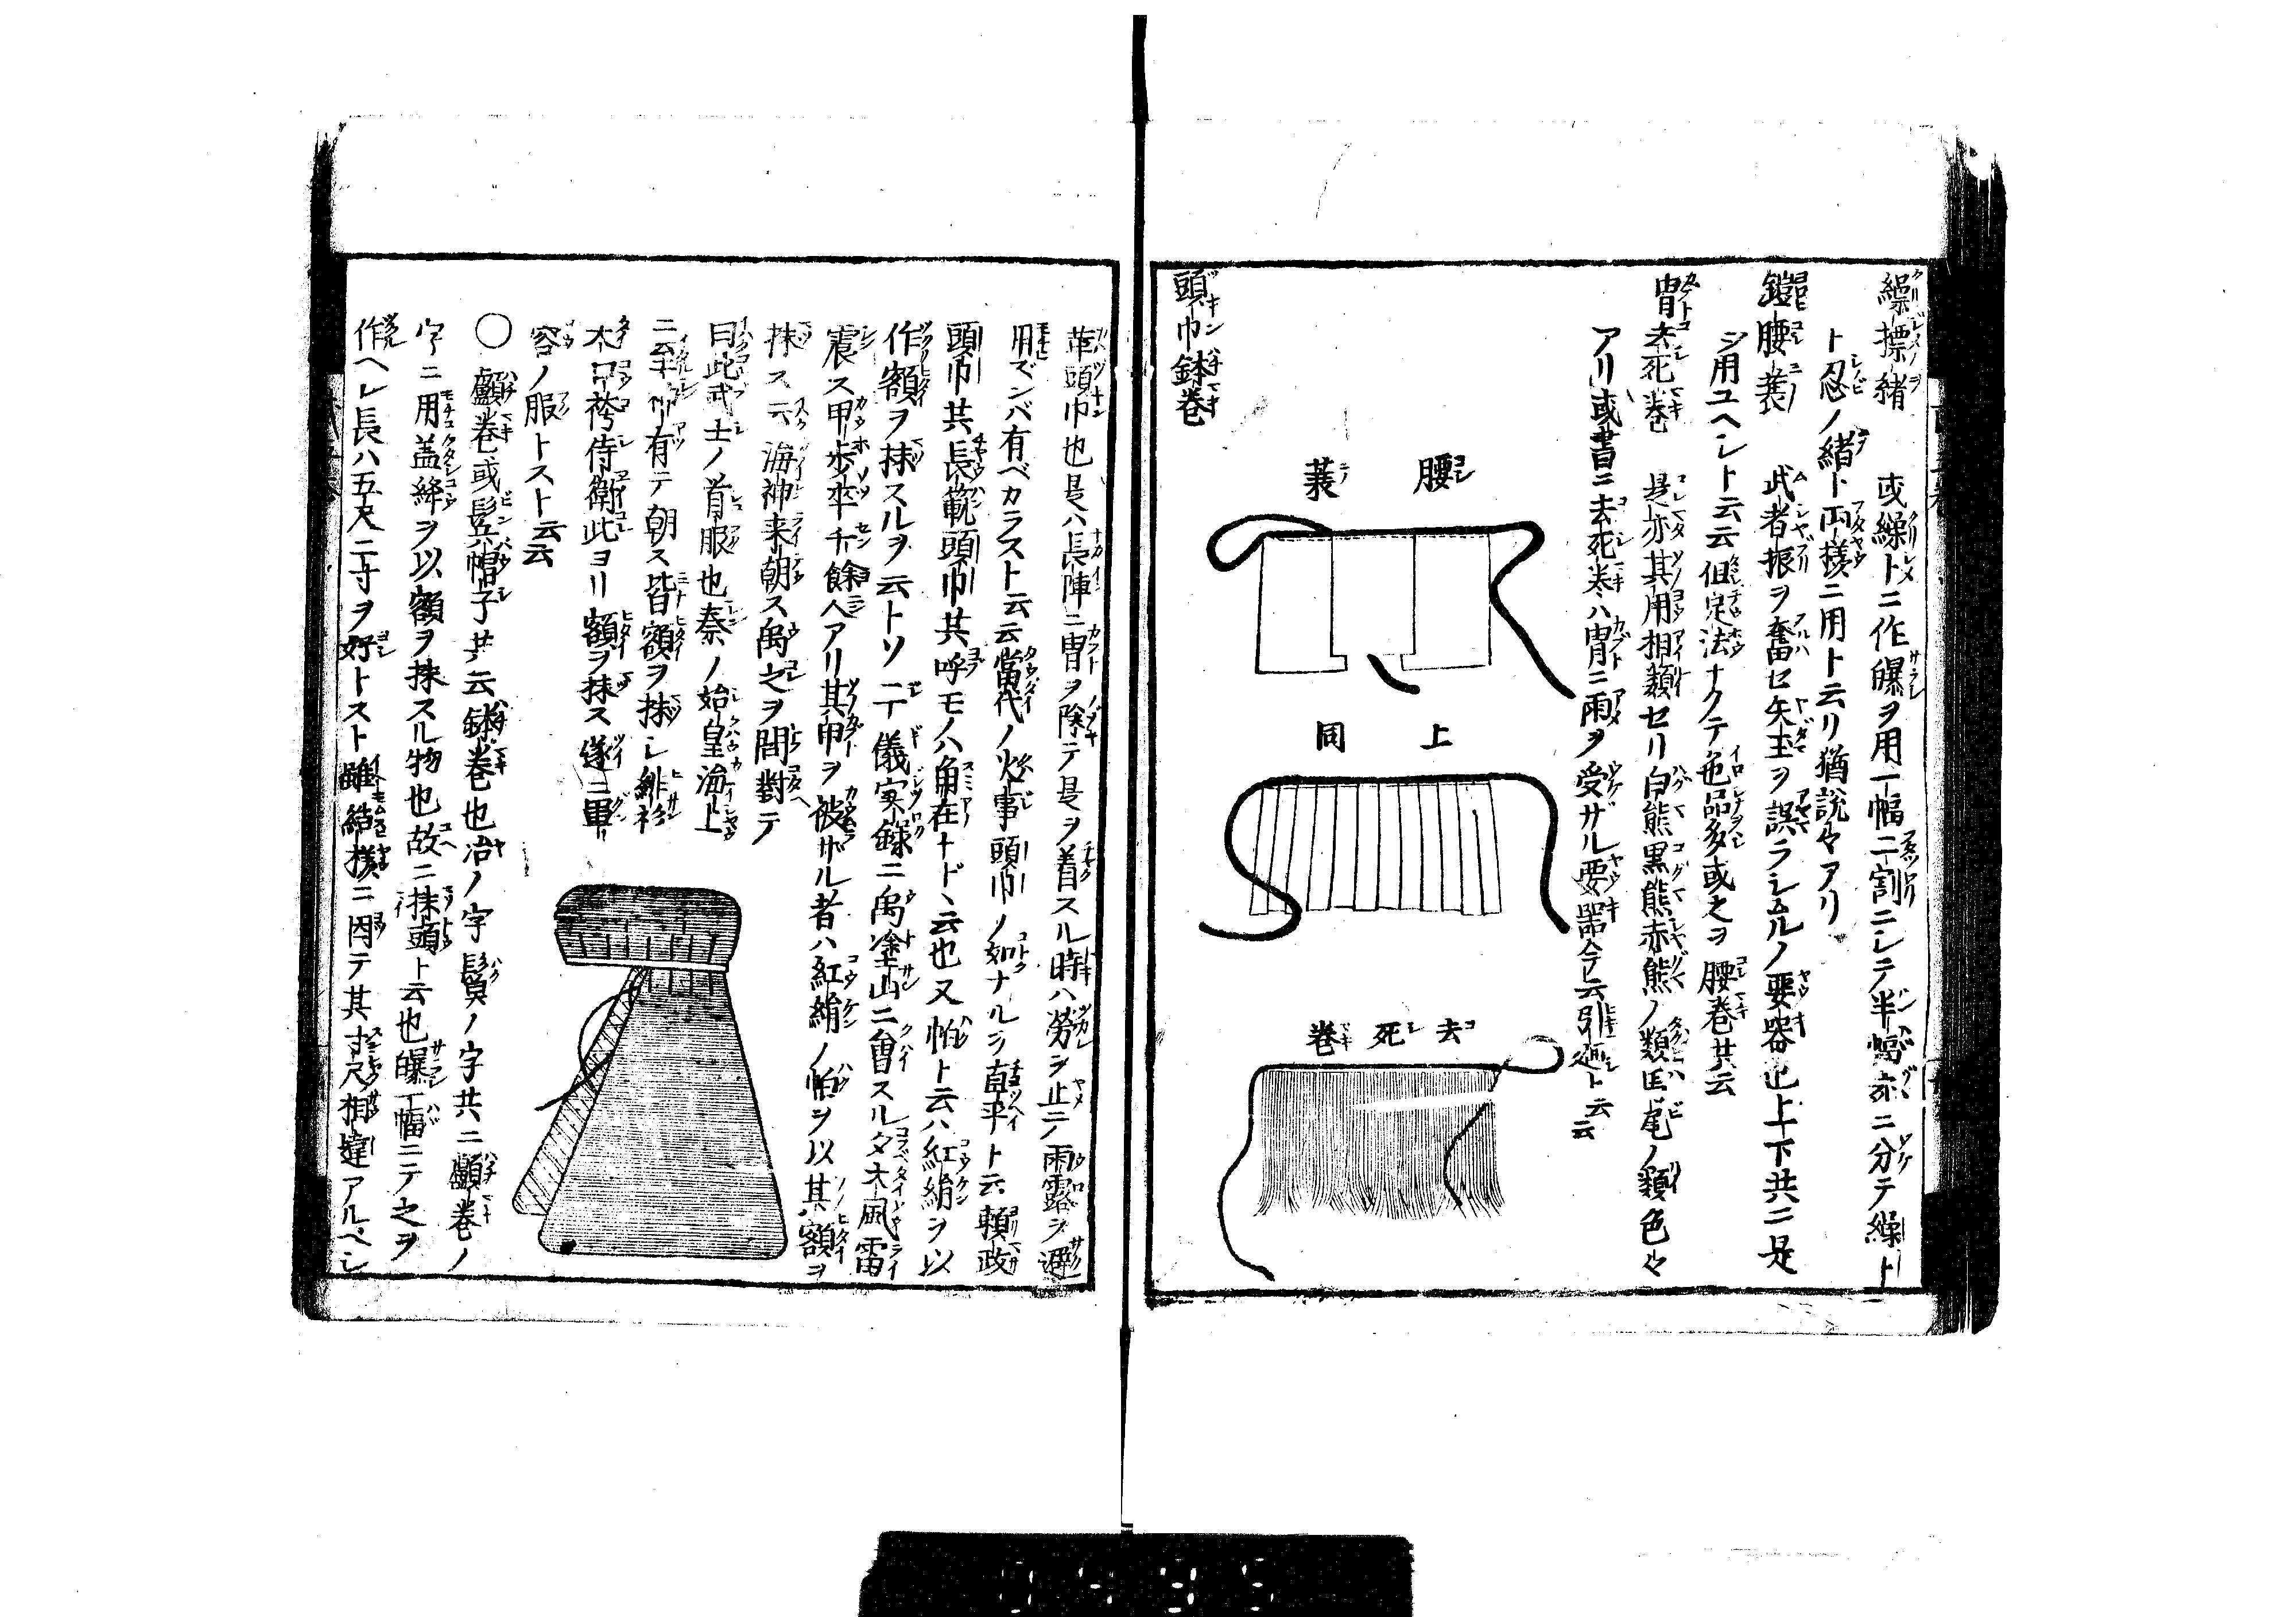 繰擐緒 或繰トニ作曝ヲ用一幅二割ニシテ半幅亦ニ分テ繰ト
ト忍ノ緒ト両様ニ用ト云リ猶説々アリ
鎧腰蓑 武者振ヲ奮セ矢玉ヲ誤ラシムルノ要器也上下共ニ是
ジ用ユヘシト云云但定法ナクテ色品多或之ヲ腰巻共云
冑去死巻 是亦其用相類セリ白熊黒熊赤熊ノ類馬毛ノ類色々
アリ或書ニ去死巻ハ冑ニ雨ヲ受ザル要器今云引廻ト云云
腰蓑
同上
去死巻
頭巾鉢巻
革頭巾也是ハ長陣ニ冑ヲ除テ是ヲ着スル時ハ労ヲ止ニノ雨露ヲ避
用ズンバ有ベカラスト云云當代ノ火事頭巾ノ如ナルヲ 平ト云頼政
頭巾共長範頭巾共呼モノハ角在ナド丶云也又帕ト云ハ紅絹ヲ以
作額ヲ抹スルヲ云トソ 儀実録ニ禹塗山ニ會スル夕大風雷
震ス甲歩卒千餘人アリ其甲ヲ被ザル者ハ紅絹ノ帕ヲ以其額ヲ
抹ス云海神来朝ス禹之ヲ問對テ
曰此武士ノ首服也秦ノ始皇海上
ニ至 有テ朝ス皆額ヲ抹シ緋衫
大口袴侍衛此ヨリ額ヲ抹ス遂ニ軍
容ノ服トスト云云
〇 巻或鬂帽子共云鉢巻也冶ノ字 ノ字共ニ 巻ノ
字ニ用盖絳ヲ以額ヲ抹スル物也故ニ抹頭ト云也曝一幅ニテ之ヲ
作ヘシ長ハ五尺二寸ヲ好トスト雖結様ニ因テ其寸尺相違アルベシ